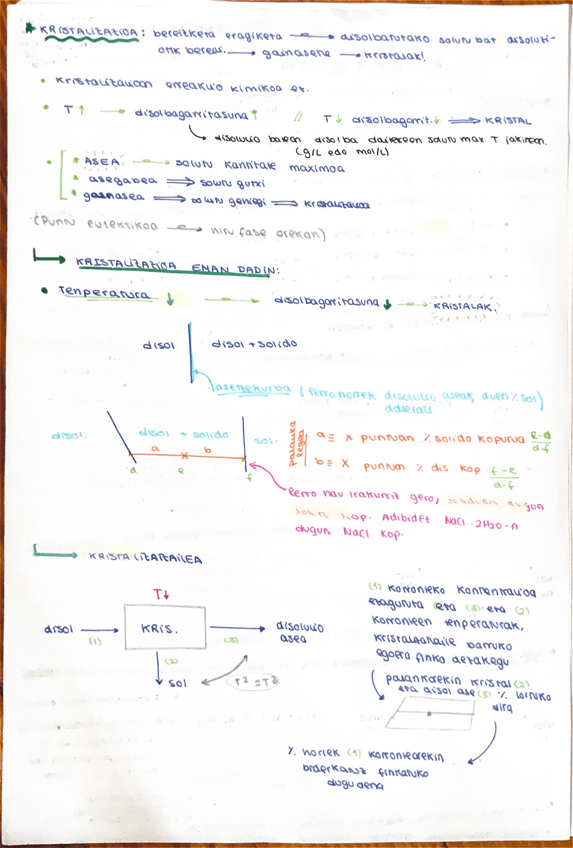 * KRISTALIZAZIOA: bereizketa eragiketa → disolbatutako solutu bat disoluzi-
otik bereizi. → gainasene → kristalak!
• Kristalizazioan erreakzio kimikoa ez.
• T ↑ → disolbagarritasuna ↑ // T ↓ disolbagarrit. ↓ ⇒ KRISTAL
↳ disoluzio batean disolba daitekeen solutu max T jakinean.
(g/L edo mol/L)
* ASEA → solutu kantitate maximoa
* asegabea ⇒ solutu gutxi
* gainasea ⇒ solutu gehiegi ⇒ kristalizazioa
(Puntu eutektikoa → hiru fase orekan)
↳ KRISTALIZAZIOA EMAN DADIN:
• Tenperatura ↓ → disolbagarritasuna ↓ → KRISTALAK.
disol disol + solido
asetze kurba (lerro horrek disoluzio aseak duen % sol)
adierazi
disol. disol + solido sol.
a b
d e f
palanka legea
a ≡ x puntuan % solido kopurua e-d/d-f
b ≡ x puntuan % dis kop f-e/d-f
lerro hau irakurriz gero, daukagun
solutu kop. Adibidez NaCl·2H2O-n
dugun NaCl kop.
↳ KRISTALIZATZAILEA
T↓
disol → (1) KRIS. (3) → disoluzio
asea
(2)
sol T² = T³
(1) korronteko kontzentrazioa
ezagututa eta (3) eta (2)
korronteen tenperaturak,
kristalizatzaile barruko
egoera finko dezakegu
palankarekin kristal (2)
eta disol ase (3) % lortuko
dira
% horiek (1) korrontearekin
biderkatuz finkatuko
dugu dena